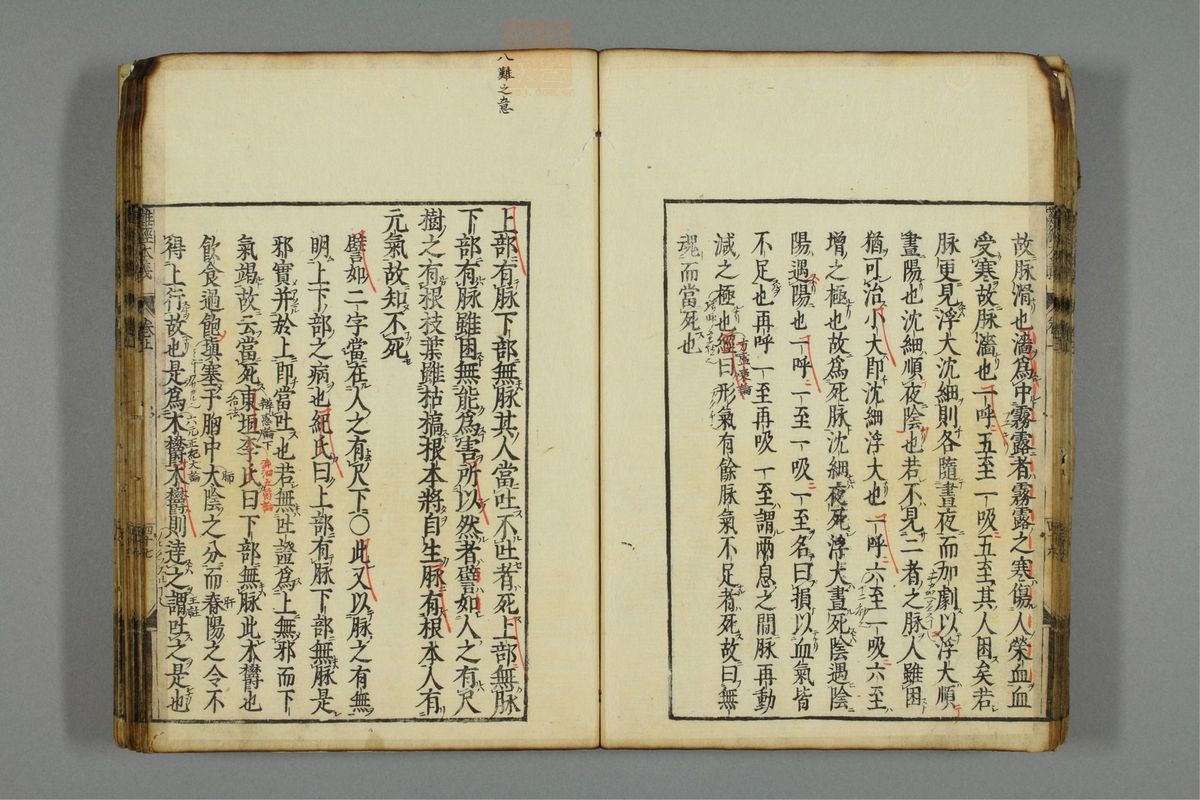 故脉滑也濇爲中霧露者霧露之寒傷人榮血血
受寒故脉濇也一呼五至一吸五至其人困矣若
脉更見浮大沈細則各隨晝夜而加劇以浮大順
晝陽也沈細順夜陰也若不見二者之脉人雖困
猶可治小大即沈細浮大也一呼六至一吸六至
增之極也故爲死脉沈細夜死浮大晝死陰遇陰
陽遇陽也一呼一至一吸一至名曰損以血氣皆
不足也再呼一至再吸一至謂兩息之間脉再動
減之極也經曰形氣有餘脉氣不足者死故曰無
魂而當死也
八難之意
上部有脉下部無脉其人當吐不吐者死上部無脉
下部有脉雖困無能爲害所以然者譬如人之有尺
樹之有根枝葉雖枯槁根本將自生脉有根本人有
元氣故知不死
譬如二字當在人之有尺下〇此又以脉之有無
明上下部之病也紀氏曰上部有脉下部無脉是
邪實并於上即當吐也若無吐證爲上無邪而下
氣竭故云當死東垣李氏曰下部無脉此木鬱也
飲食過飽塡塞于胸中大陰之分而春陽之令不
得上行故也是爲木鬱木鬱則達之謂吐之是也